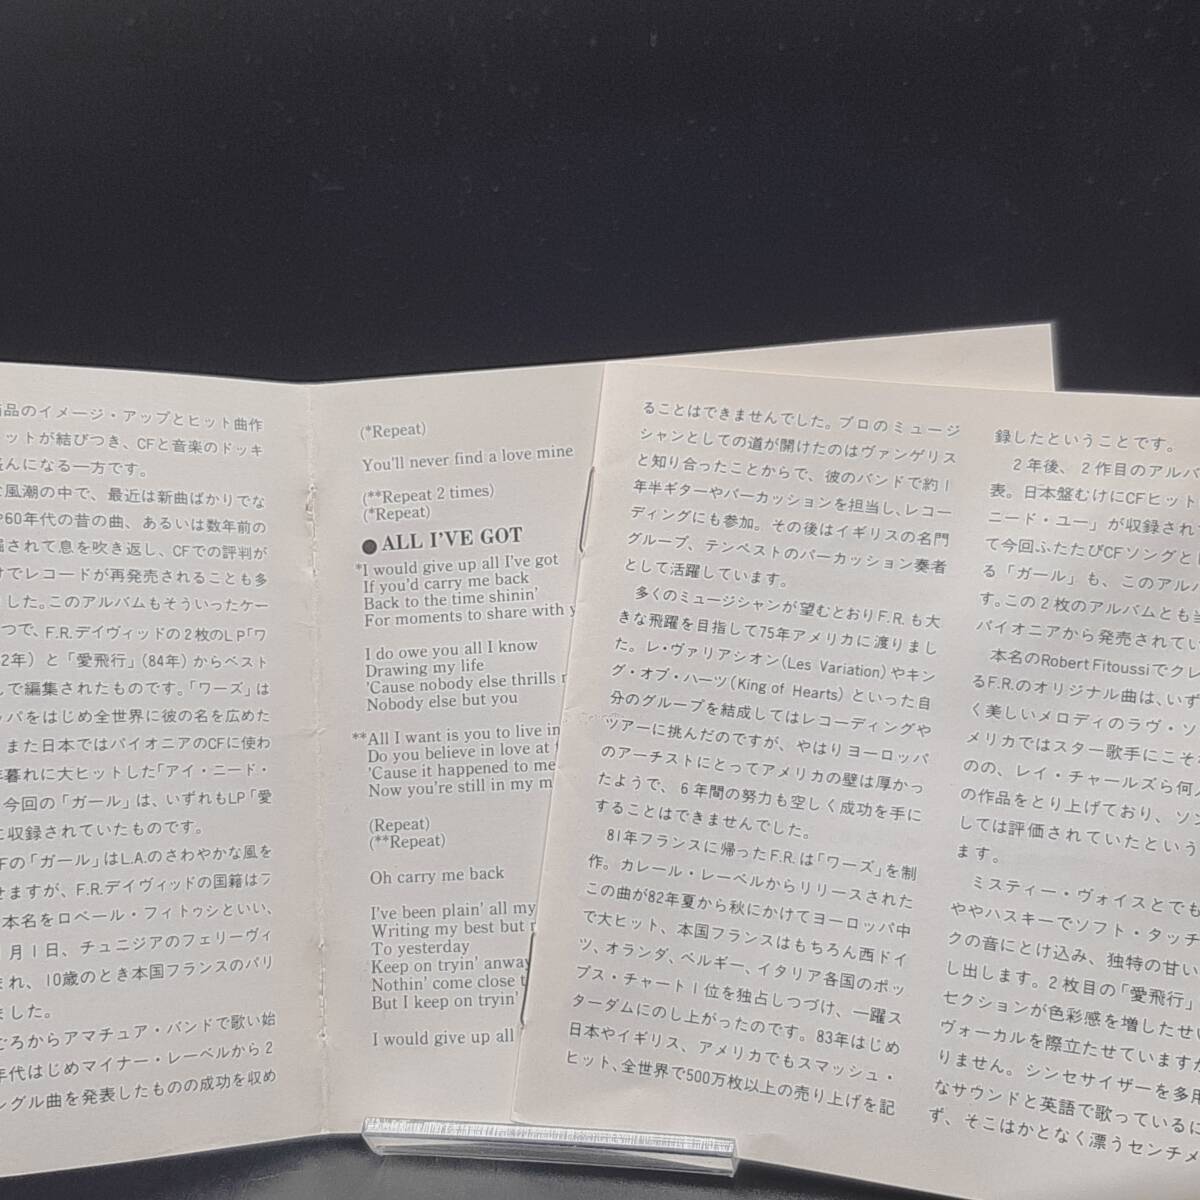 商品のイメージ・アップとヒット曲作
ットが結びつき、CFと音楽のドッキ
盛んになる一方です。
な風潮の中で、最近は新曲ばかりでな
や60年代の昔の曲、あるいは数年前の
掘されて息を吹き返し、CFでの評判が
けでレコードが再発売されることも多
した。このアルバムもそういったケー
つで、F.R.デイヴィッドの2枚のLP「ワ
2年）と「愛飛行」(84年) からベスト
して編集されたものです。「ワーズ」は
ッパをはじめ全世界に彼の名を広めた
また日本ではパイオニアのCFに使わ
年暮れに大ヒットした「アイ・ニード・
今回の「ガール」は、いずれもLP「愛
に収録されていたものです。
Fの「ガール」はL.A.のさわやかな風を
せますが、F.R.デイヴィッドの国籍はフ
本名をロベール・フィトゥシといい、
月1日、チュニジアのフェリーヴィ
まれ、10歳のとき本国フランスのパリ
ました。
ごろからアマチュア・バンドで歌い始
年代はじめマイナー・レーベルから2
ングル曲を発表したものの成功を収め
(*Repeat)
You'll never find a love mine
(**Repeat 2 times)
(*Repeat)
●ALL I'VE GOT
*I would give up all I've got
If you'd carry me back
Back to the time shinin'
For moments to share with y
I do owe you all I know
Drawing my life
'Cause nobody else thrills
Nobody else but you
**All I want is you to live in
Do you believe in love at
'Cause it happened to me
Now you're still in my m
(Repeat)
(**Repeat)
Oh carry me back
I've been plain' all my
Writing my best but
To yesterday
Keep on tryin' anway
Nothin' come close t
But I keep on tryin'
I would give up all
ることはできませんでした。プロのミュージ
シャンとしての道が開けたのはヴァンゲリス
と知り合ったことからで、彼のバンドで約1
年半ギターやパーカッションを担当し、レコー
ディングにも参加。その後はイギリスの名門
グループ、テンペストのパーカッション奏者
として活躍しています。
多くのミュージシャンが望むとおりF.R.も大
きな飛躍を目指して75年アメリカに渡りまし
た。レ・ヴァリアシオン(Les Variation)やキン
グ・オブ・ハーツ(King of Hearts)といった自
分のグループを結成してはレコーディングや
ツアーに挑んだのですが、やはりヨーロッパ
のアーチストにとってアメリカの壁は厚かっ
たようで、6年間の努力も空しく成功を手に
することはできませんでした。
81年フランスに帰ったF.R.は「ワーズ」を制
作。カレール・レーベルからリリースされた
この曲が82年夏から秋にかけてヨーロッパ中
で大ヒット、本国フランスはもちろん西ドイ
ツ、オランダ、ベルギー、イタリア各国のポッ
プス・チャート1位を独占しつづけ、一躍ス
ターダムにのし上がったのです。83年はじめ
日本やイギリス、アメリカでもスマッシュ・
ヒット、全世界で500万枚以上の売り上げを記
録したということです。
2年後、2作目のアルバ
表。日本盤むけにCFヒット
ニード・ユー」が収録され
て今回ふたたびCFソングとし
る「ガール」も、このアルバ
す。この2枚のアルバムとも当
パイオニアから発売されてい
本名のRobert Fitoussiでクレ
るF.R.のオリジナル曲は、いず
く美しいメロディのラヴ・ソ
メリカではスター歌手にこそな
のの、レイ・チャールズら何人
の作品をとり上げており、ソン
しては評価されていたという
ます。
ミスティー・ヴォイスとでも
ややハスキーでソフト・タッチ
クの音にとけ込み、独特の甘い
し出します。2枚目の「愛飛行」
セクションが色彩感を増したせい
ヴォーカルを際立たせていますが
りません。シンセサイザーを多用
なサウンドと英語で歌っているに
ず、そこはかとなく漂うセンチメ